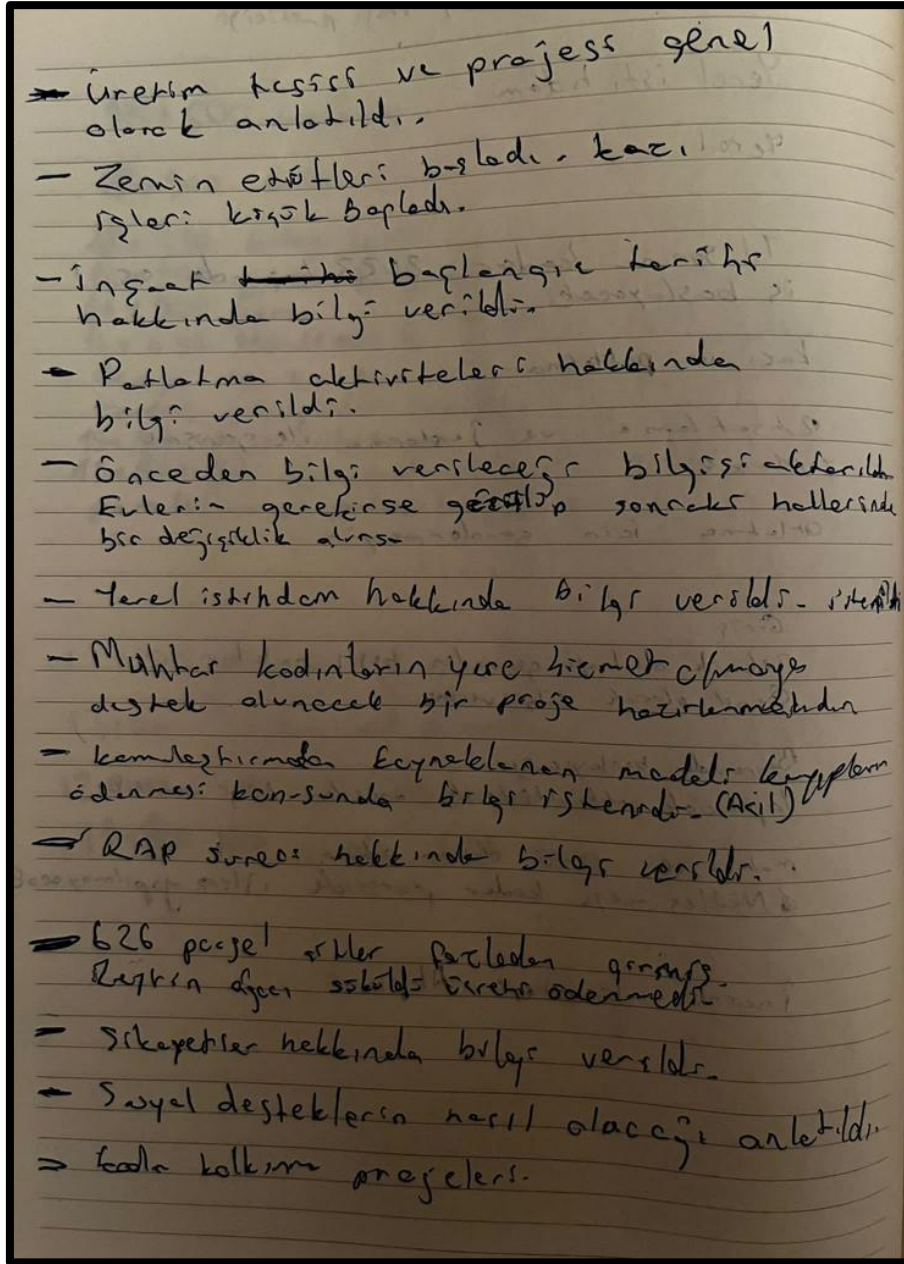 - Üretim tesisi ve projesi genel
olarak anlatıldı.
- Zemin etütleri başladı. kazı
işleri küçük başladı.
- İnşaat başlangıç tarihi
hakkında bilgi verildi.
- Patlatma aktiviteleri hakkında
bilgi verildi.
- Önceden bilgi verileceği bilgisi aktarıldı
Evlerin gerekirse sonraki hallerinde
bir değişiklik olursa
- Yerel istihdam hakkında bilgi verildi.
- Muhtar kadınların yere hizmet
destek alınacak bir proje hazırlanmalıdır
- kamulaştırmadan kaynaklanan maddi kayıpların
ödenmesi konusunda bilgi istenildi. (Acil)
- RAP süreci hakkında bilgi verildi.
- 626 parsel fazladan girmiş.
Zeytin ağacı söküldü ücreti ödenmedi.
- Şikayetler hakkında bilgi verildi.
- Sosyal desteklerin nasıl olacağı anlatıldı.
- kalkınma projeleri.